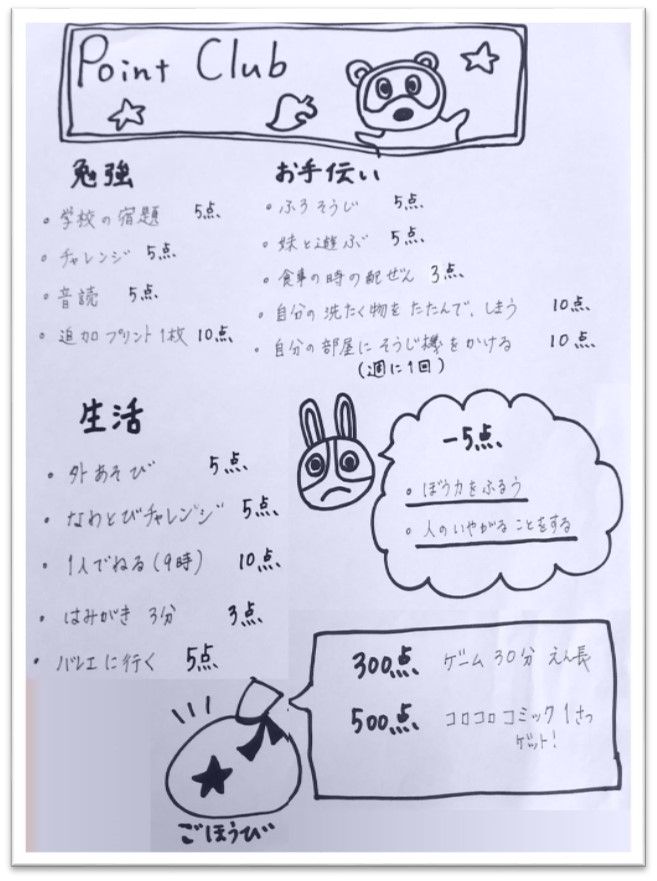 Point Club
勉強
・学校の宿題 5点
・チャレンジ 5点
・音読 5点
・追加プリント1枚 10点
お手伝い
・ふろそうじ 5点
・妹と遊ぶ 5点
・食事の時の配ぜん 3点
・自分の洗たく物をたたんで、しまう 10点
・自分の部屋にそうじ機をかける 10点
(週に1回)
生活
・外あそび 5点
・なわとびチャレンジ 5点
・1人でねる(9時) 10点
・はみがき 3分 3点
・バレエに行く 5点
-5点
・ぼう力をふるう
・人のいやがることをする
300点 ゲーム 30分 えん長
500点 コロコロコミック 1さつ
ゲット!
ごほうび